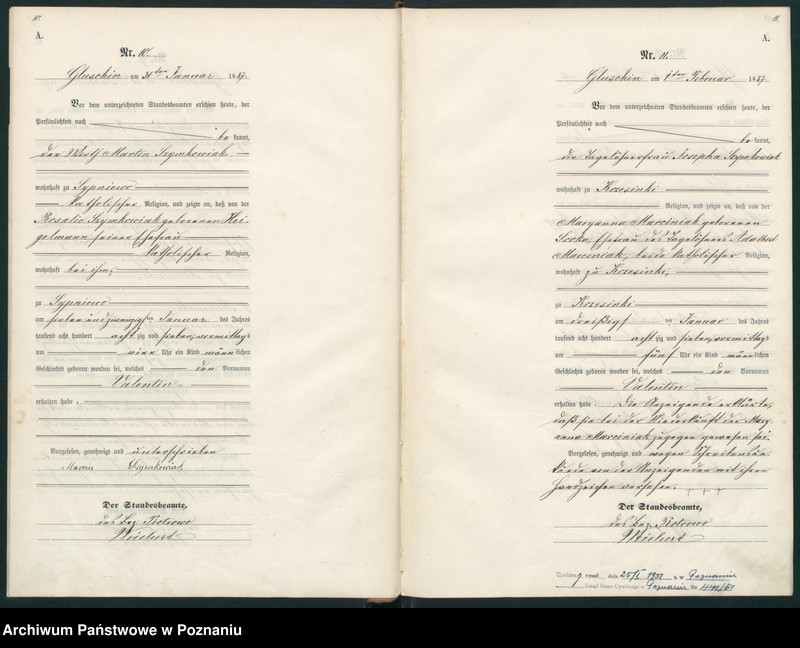 10.
A.
Nr. 10.
Gluschin am 31ten Januar 1887.
Vor dem unterzeichneten Standesbeamten erschien heute, der
Persönlichkeit nach
be kannt,
der Wirth Martin Szymkowiak
wohnhaft zu Sypniewo
katholischer Religion, und zeigte an, daß von der
Rosalie Szymkowiak geborenen Hei-
gelmann seiner Ehefrau
katholischer Religion,
wohnhaft bei ihm,
zu Sypniewo
am sieben und zwanzigsten Januar des Jahres
tausend acht hundert acht zig und sieben, vormittags
um vier Uhr ein Kind männlichen
Geschlechts geboren worden sei, welches den Vornamen
Valentin
erhalten habe.
Vorgelesen, genehmigt und unterschrieben
Marcin Szymkowiak
Der Standesbeamte,
des Bez. Piotrowo
11.
A.
Nr. 11.
Gluschin am 1ten Februar 1887.
Vor dem unterzeichneten Standesbeamten erschien heute, der
Persönlichkeit nach
be kannt,
die Tagelöhnerfrau Josepha Szymkowiak
wohnhaft zu Krzesinki
Religion, und zeigte an, daß von der
Maryanna Marciniak geborenen
Ehefrau des Tagelöhners Adalbert
Marciniak, beide katholischer Religion,
wohnhaft zu Krzesinki,
zu Krzesinki
am dreißigst en Januar des Jahres
tausend acht hundert acht zig und sieben, vormittags
um fünf Uhr ein Kind männlichen
Geschlechts geboren worden sei, welches den Vornamen
Valentin
erhalten habe. Die Anzeigende erklärte,
daß sie bei der Niederkunft der Mary-
anna Marciniak zugegen gewesen sei.
Vorgelesen, genehmigt und wegen Schreibensun-
kunde von der Anzeigenden mit ihrem
Handzeichen versehen. +++
Der Standesbeamte,
des Bez. Piotrowo
dnia 25/I 1951 r. w Poznaniu
Urząd Stanu Cywilnego w Poznaniu Nr
Archiwum Państwowe w Poznaniu